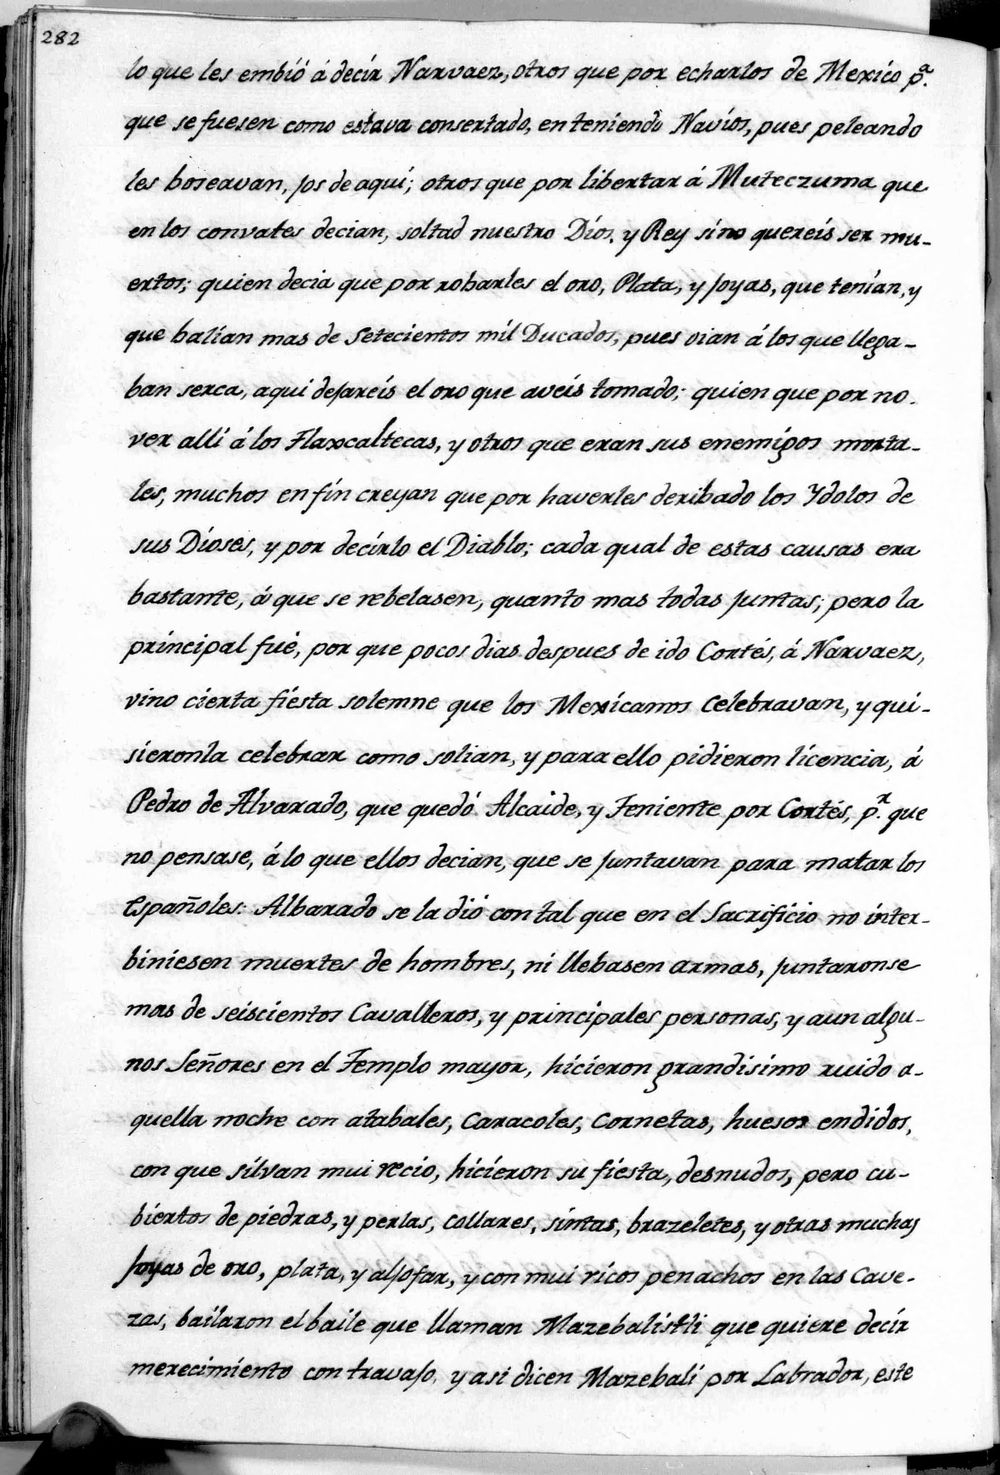 282
lo que les embió á decír Narvaez, otros que por echarlos de Mexíco p.ª
que se fuesen como estava consertado, en teniendo Navíos, pues peleando
les boseavan, jos de aquí; otros que por libertar á Muteczuma que
en los convates decian, soltad nuestro Díos, y Rey síno quereis ser mu-
ertos; quien decia que por robarles el oro, Plata, y joyas, que tenían, y
que balían mas de Setecientos míl Ducados, pues oian á los que llega-
ban serca, aqui dejareís el oro que aveis tomado; quien que por no
ver alli á los Tlaxcaltecas, y otros que eran sus enemigos morta-
les, muchos en fín creyan que por haverles deribado los Ydolos de
sus Díoses, y por decírlo el Diablo; cada qual de estas causas era
bastante, á que se rebelasen, quanto mas todas juntas; pero la
príncipal fué, por que pocos dias despues de ido Cortés, á Narvaez,
vino cierta fiesta solemne que los Mexícanos Celebravan, y qui-
sieronla celebrar como solian, y para ello pidieron lícencia, á
Pedro de Alvarado, que quedó Alcaide, y Teniente por Cortés, p.r que
no pensase, á lo que ellos decian, que se juntavan para matar los
Españoles: Albarado se la dió con tal que en el Sacrificio no inter-
biniesen muertes de hombres, ni llebasen armas, juntaronse
mas de seiscientos Cavalleros, y principales personas, y aun algu-
nos Señores en el Templo mayor, hicieron grandisimo ruido a-
quella noche con atabales, Caracoles, Cornetas, huesos endidos,
con que sílvan mui recio, hícieron su fiesta, desnudos, pero cu-
biertos de piedras, y perlas, Collares, síntas, brazeletes, y otras muchas
joyas de oro, plata, y aljofar, y con mui ricos penachos en las Cave-
zas, bailaron el baile que llaman Mazebalistli que quiere decír
merecimiento con travajo, y asi dicen Mazebali por Labrador, este